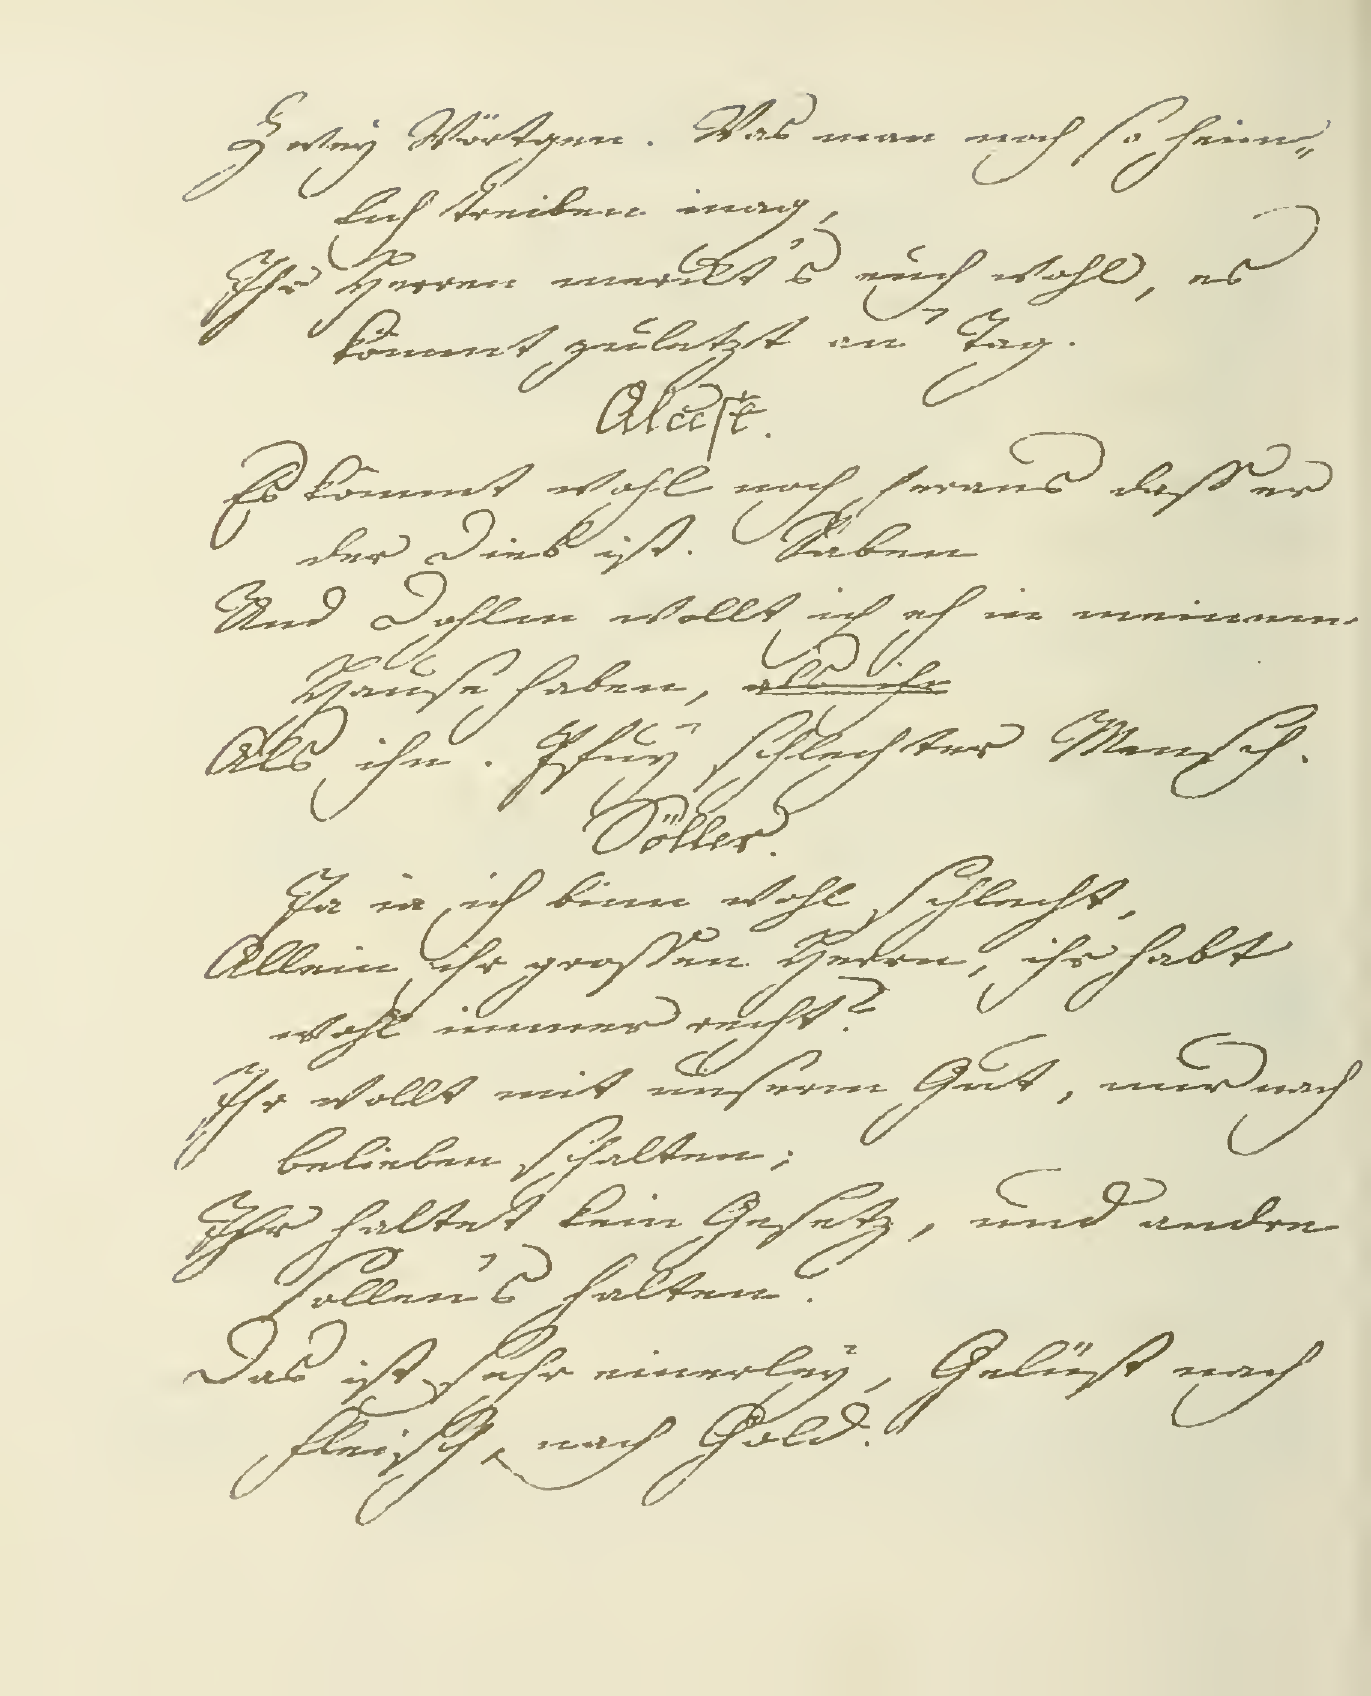 Zwey Wörtgen. Was man noch so heim=
lich treiben mag,
Ihr Herren merckt's euch wohl, es
kömmt zuletzt an Tag.
Alcest.
Es kömmt wohl noch heraus dass er
der Dieb ist. Raben
Und Dohlen wollt ich eh in meinem
Hause haben, als ihn
Als ihn. Pfuy schlechter Mensch.
Söller.
Ja ia ich binn wohl schlecht,
Allein ihr grossen Herrn, ihr habt
wohl immer recht?
Ihr wollt mit unserm Gut, nur nach
belieben schalten;
Ihr haltet kein Gesetz, und andre
sollen's halten.
Das ist sehr einerley, Gelüst nach
Fleisch, nach Gold.